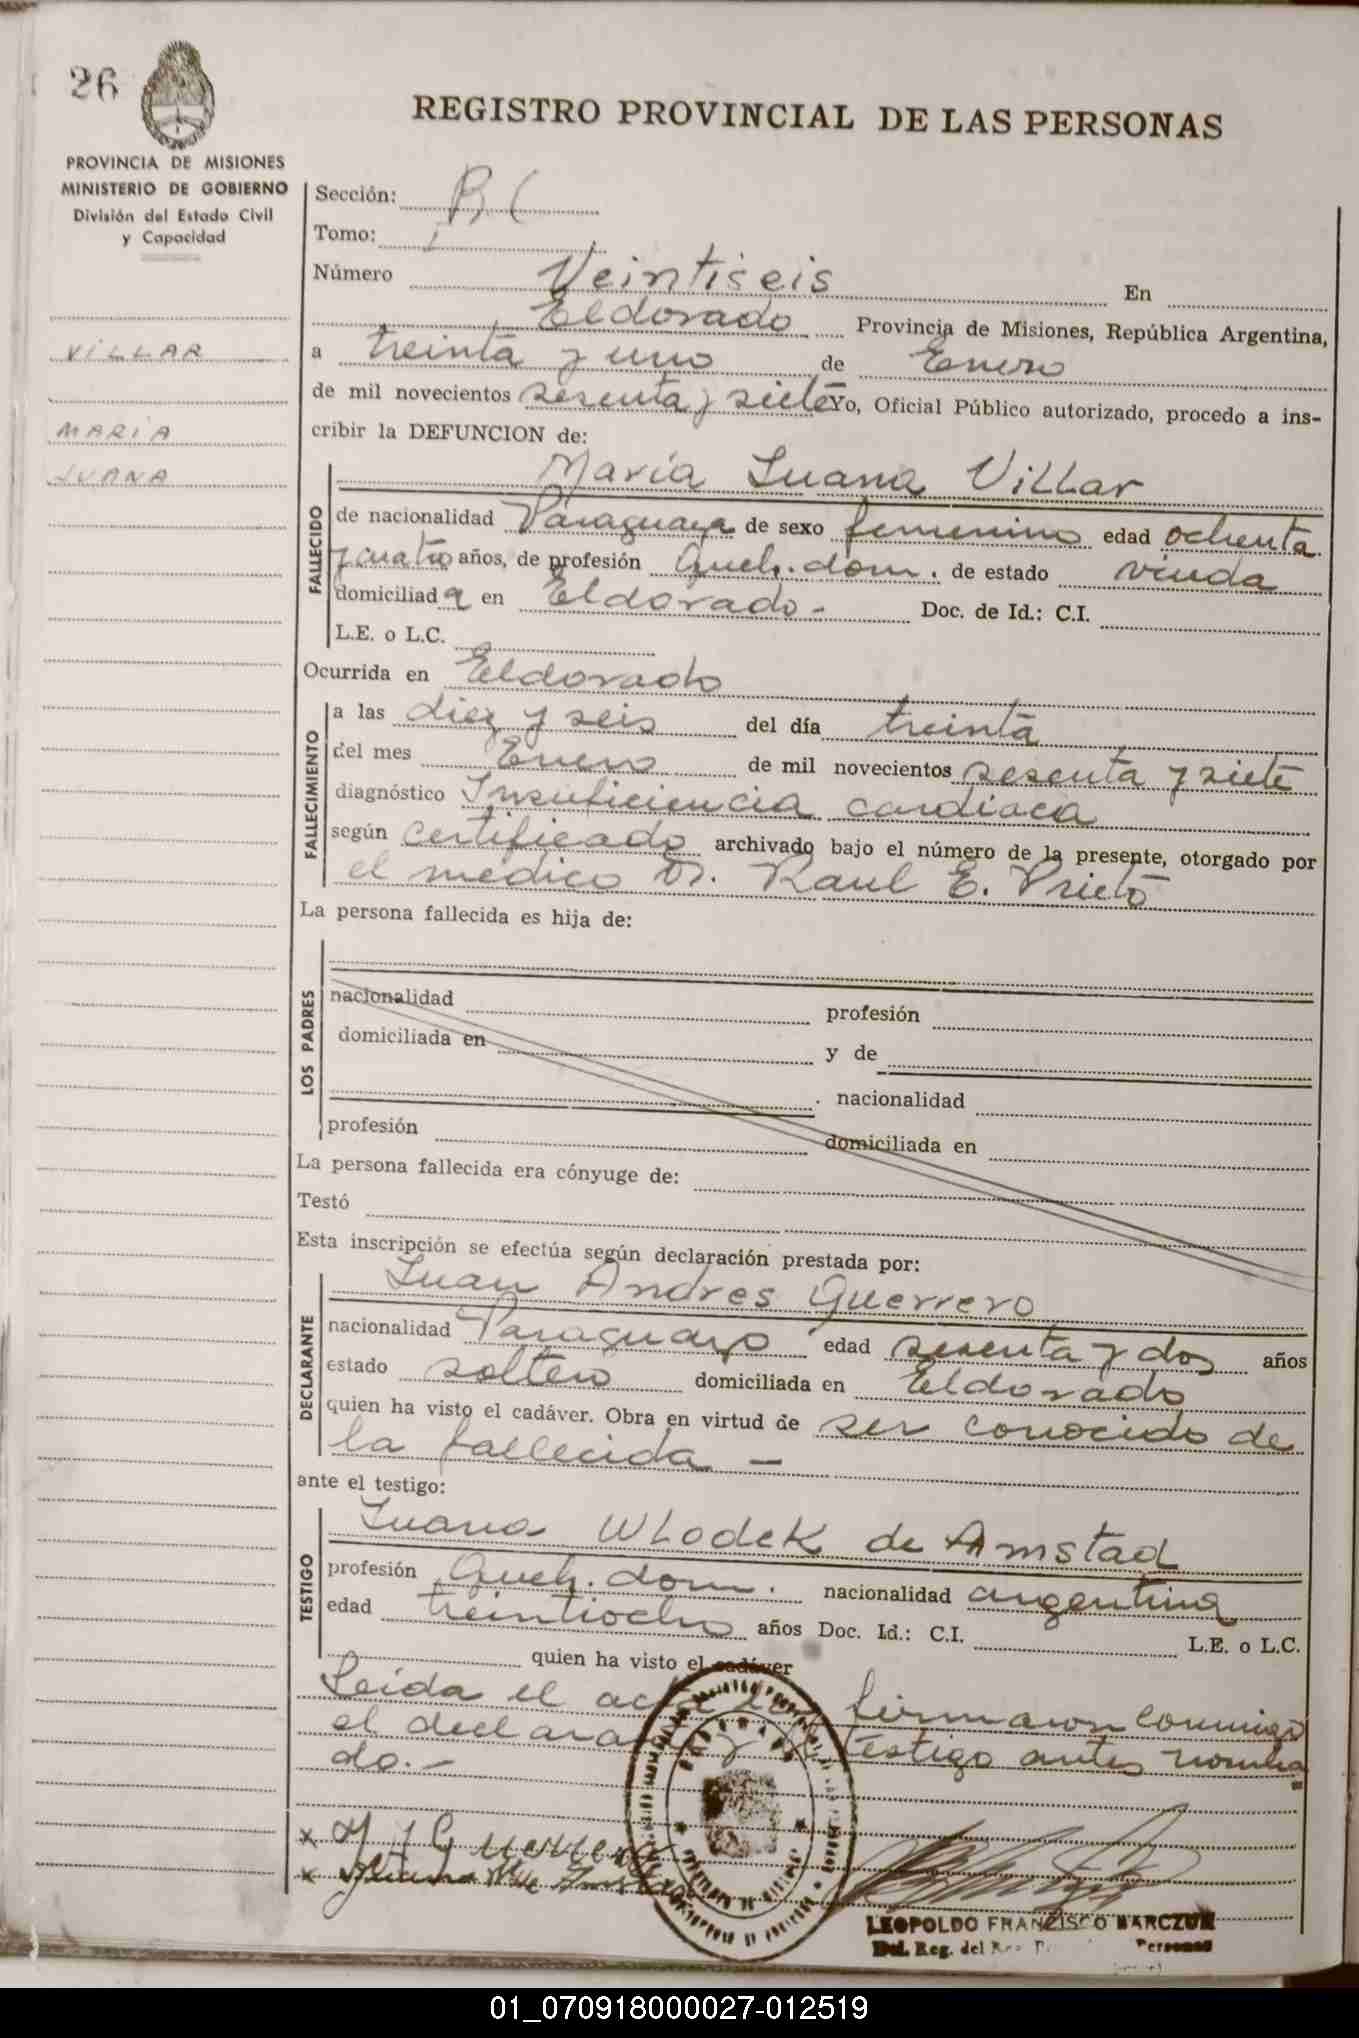 26
REGISTRO PROVINCIAL DE LAS PERSONAS
PROVINCIA DE MISIONES
MINISTERIO DE GOBIERNO
División del Estado Civil
y Capacidad
VILLAR
MARIA
JUANA
Sección:
Tomo: I
Número Veintiseis En
Eldorado Provincia de Misiones, República Argentina,
a treinta y uno de Enero
de mil novecientos sesenta y siete Yo, Oficial Público autorizado, procedo a ins-
cribir la DEFUNCION de:
María Juana Villar
FALLECIDO
de nacionalidad Paraguaya de sexo femenino edad ochenta
y cuatro años, de profesión Queh. dom. de estado viuda
domiciliada en Eldorado.- Doc. de Id.: C.I.
L.E. o L.C.
Ocurrida en Eldorado
FALLECIMIENTO
a las diez y seis del día treinta
del mes Enero de mil novecientos sesenta y siete
diagnóstico Insuficiencia cardiaca
según certificado archivado bajo el número de la presente, otorgado por
el médico Dr. Raul E. Prieto
La persona fallecida es hija de:
LOS PADRES
nacionalidad profesión
domiciliada en y de
nacionalidad
profesión domiciliada en
La persona fallecida era cónyuge de:
Testó
Esta inscripción se efectúa según declaración prestada por:
Juan Andres Guerrero
DECLARANTE
nacionalidad Paraguayo edad sesenta y dos años
estado soltero domiciliada en Eldorado
quien ha visto el cadáver. Obra en virtud de ser conocido de
la fallecida -
ante el testigo:
Juana Wlodek de Amstad
TESTIGO
profesión Queh. dom. nacionalidad argentina
edad treintiocho años Doc. Id.: C.I. L.E. o L.C.
quien ha visto el cadáver
Leida el acta la firmaron conmigo
el declarante y testigo antes nombra
do.-
x J A Guerrero
x Juana W de Amstad
LEOPOLDO FRANZISCO BARCZUK
Del. Reg. del Personas
01_070918000027-012519